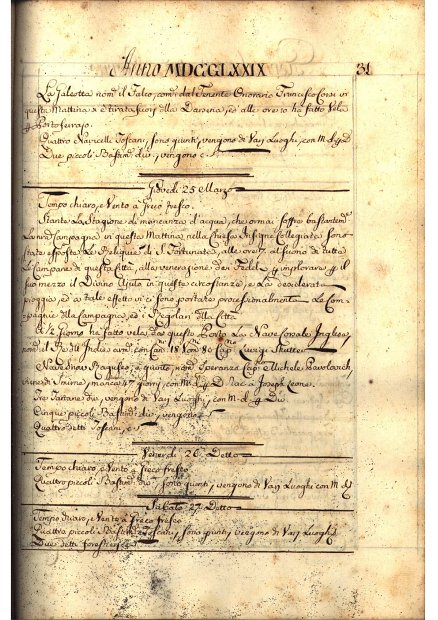 Anno MDCCLXXIX 31
La Galeotta nom. il Falco, com. dal Tenente Onorario Francesco
questa Mattina si è tirata fuori dalla Darsena, ed alle ore 10 ha fatto Vela
Portoferrajo.
Quattro Navicelli Toscani, sono giunti, vengono di Varj Luoghi, con M. d. g. D.
Due piccoli Bastim. di vengono
Giovedi 25 Marzo
Tempo chiaro, e Vento a Greco fresco.
Stante La Stagione di mancanza d'acqua, che ormai soffre
La Campagna in questa Mattina, nella Chiesa Insigne Collegiata sono
state esposte Le Reliquie di S. Fortunata, alle ore 7 al suono di tutte
Le Campane di questa Città, alla venerazione dei Fedeli implorare
suo mezzo il Divino Ajuto in queste circostanze, e La desiderata
pioggia, ed a tale effetto vi ci sono portate processionalmente Le Com-
pagnie della Campagna, ed i Regolari della Città.
A ½ Giorno ha fatto vela da questo Porto La Nave Corsale Inglese,
nom. Indie arm. con Can. 18 Uom. 80 Cap. Luigi Shutter
Nave Snow Raguseo, è giunto, nom. Speranza Cap. Michele
viene di Smirne, manca 47 giorni, con M. d. g. D. Rac. a Joseph Leone.
Tre Tartane di vengono di Varj Luoghi, con M. d. g. D.
Cinque piccoli Bastim. di vengono
Quattro detti Toscani,
Venerdi 26. Detto
Tempo chiaro, e Vento a Greco fresco
Quattro piccoli Bastim. sono giunti, vengono di Varj Luoghi con M. d. g.
Sabato 27 Detto
Tempo chiaro, e Vento a Greco fresco
Quattro piccoli Bastim. Toscani, sono giunti, vengono di Varj Luoghi
Due detti forestieri